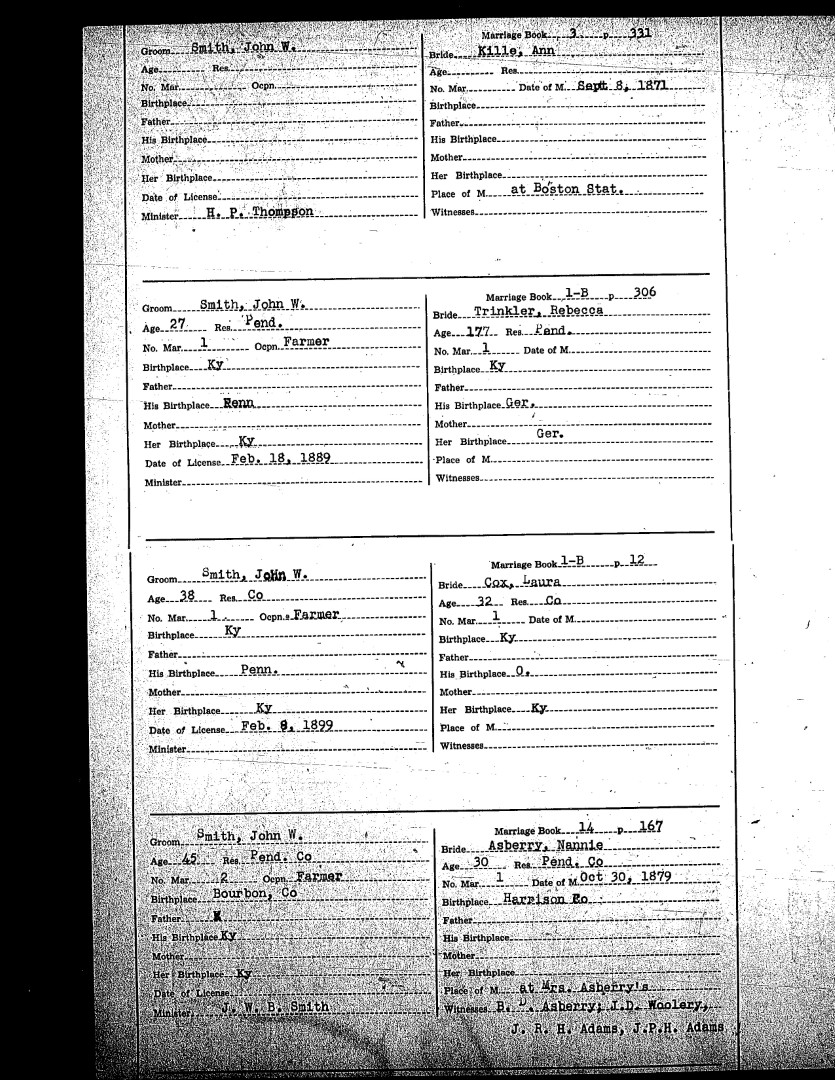 Groom Smith, John W.
Age Res.
No. Mar. Ocpn.
Birthplace
Father
His Birthplace
Mother
Her Birthplace
Date of License
Minister H. P. Thompson
Marriage Book 3 p 331
Bride Kille, Ann
Age Res.
No. Mar. Date of M. Sept 8, 1871
Birthplace
Father
His Birthplace
Mother
Her Birthplace
Place of M. at Boston Stat.
Witnesses
Groom Smith, John W.
Age 27 Res. Pend.
No. Mar. 1 Ocpn. Farmer
Birthplace Ky
Father
His Birthplace Penn
Mother
Her Birthplace Ky
Date of License Feb. 18, 1889
Minister
Marriage Book 1-B p 306
Bride Trinkler, Rebecca
Age 177 Res. Pend.
No. Mar. 1 Date of M.
Birthplace Ky
Father
His Birthplace Ger.
Mother
Her Birthplace Ger.
Place of M.
Witnesses
Groom Smith, John W.
Age 38 Res. Co
No. Mar. 1 Ocpn. Farmer
Birthplace Ky
Father
His Birthplace Penn.
Mother
Her Birthplace Ky
Date of License Feb. 8, 1899
Minister
Marriage Book 1-B p 12
Bride Cox, Laura
Age 32 Res. Co
No. Mar. 1 Date of M.
Birthplace Ky
Father
His Birthplace O.
Mother
Her Birthplace Ky
Place of M.
Witnesses
Groom Smith, John W.
Age 45 Res. Pend. Co
No. Mar. 2 Ocpn. Farmer
Birthplace Bourbon, Co
Father
His Birthplace Ky
Mother
Her Birthplace Ky
Date of License
Minister J. W. B. Smith
Marriage Book 14 p 167
Bride Asberry, Nannie
Age 30 Res. Pend. Co
No. Mar. 1 Date of M. Oct 30, 1879
Birthplace Harrison Co
Father
His Birthplace
Mother
Her Birthplace
Place of M. at Mrs. Asberry's
Witnesses B. D. Asberry; J.D. Woolery,
J. R. H. Adams, J.P.H. Adams